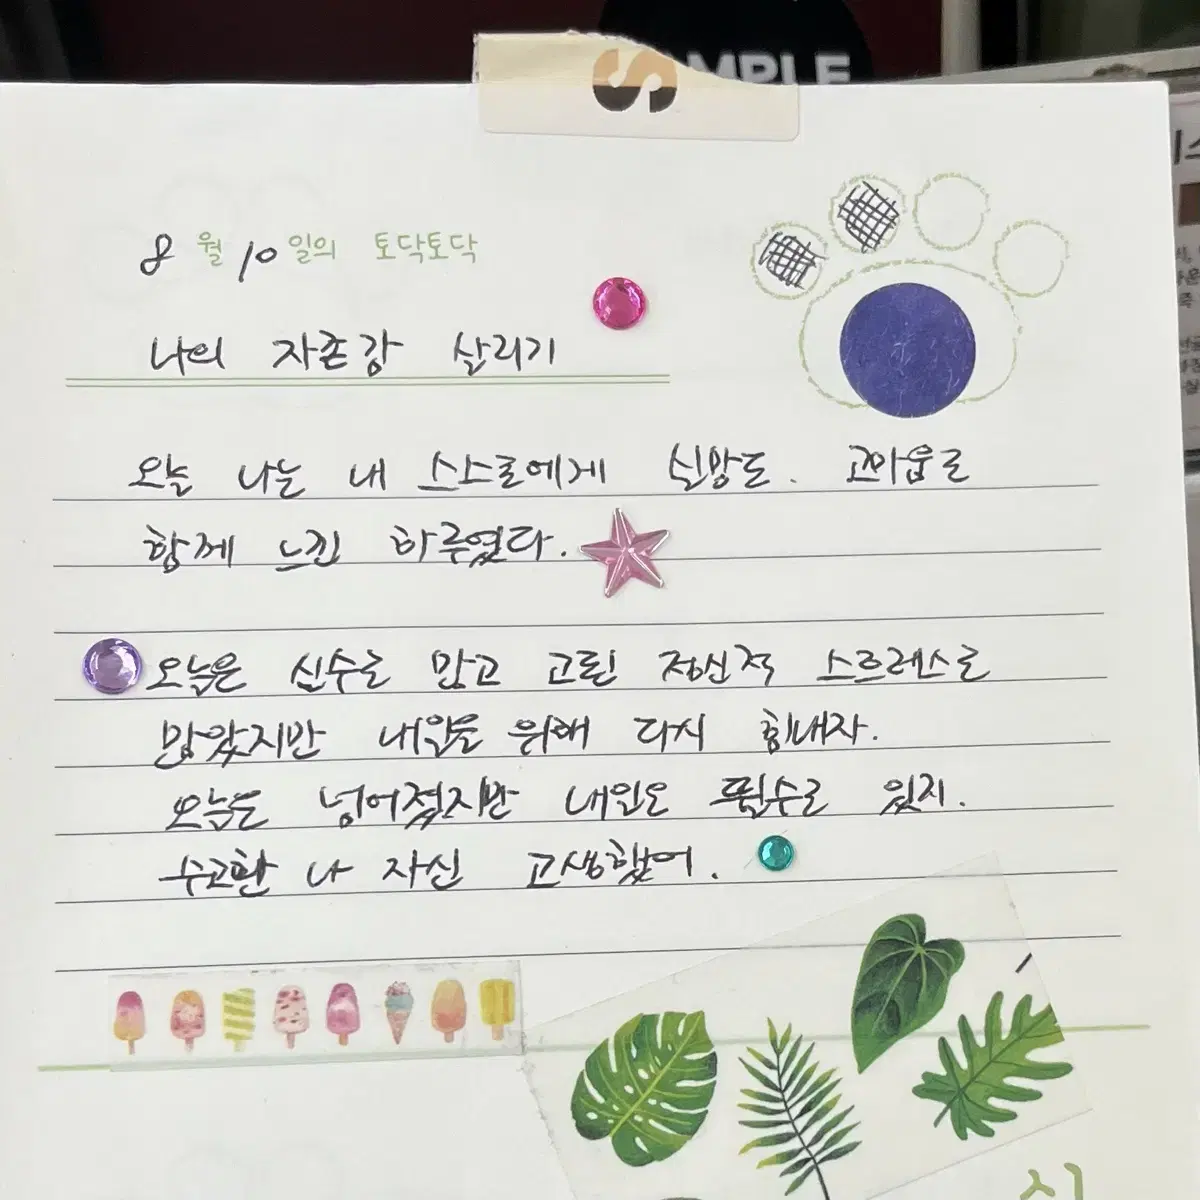 SAMPLE
8월 10일의 토닥토닥
나의 자존감 살리기
오늘 나는 내 스스로에게 실망도. 고마움로
함께 느낀 하루였다.
오늘은 실수로 많고 고린 정신적 스트레스로
많았지만 내일을 위해 다시 힘내자.
오늘은 넘어졌지만 내일은 뜀수로 있지.
수고한 나 자신 고생했어.